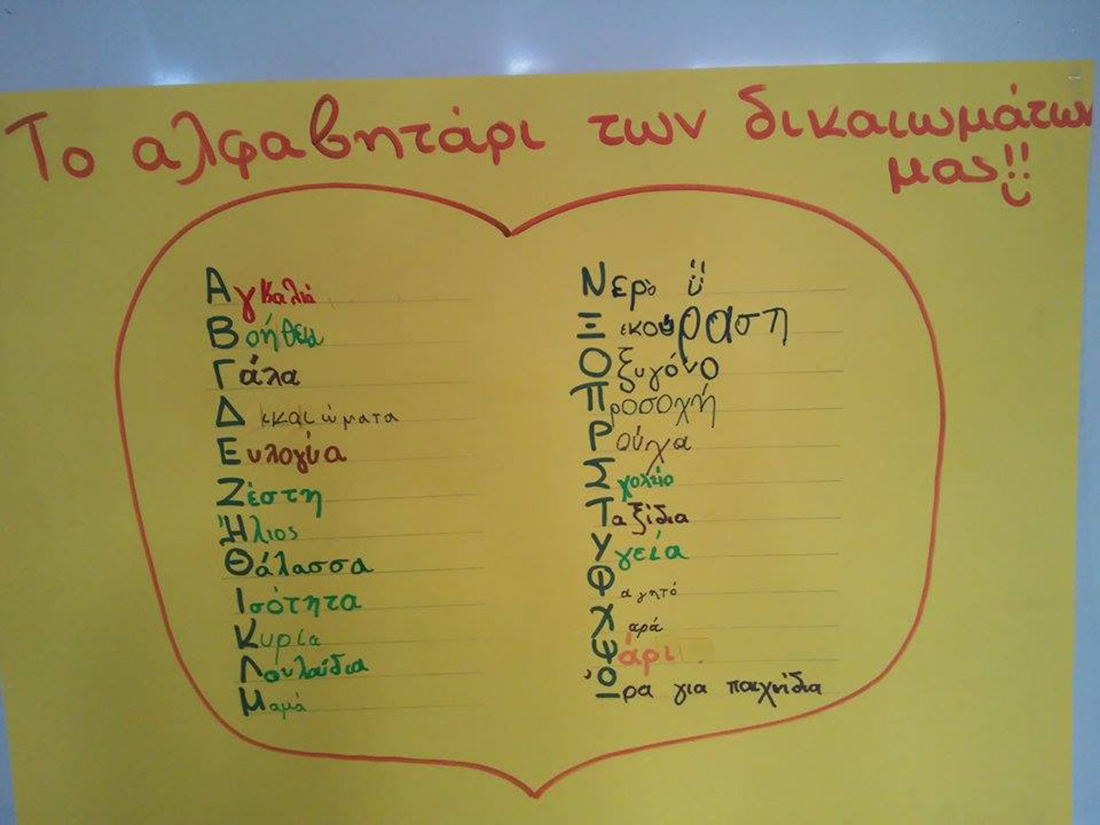 Το αλφαβητάρι των δικαιωμάτων
μας!!
Αγκαλιά
Βοήθεια
Γάλα
Δικαιώματα
Ευλογία
Ζέστη
Ήλιος
Θάλασσα
Ισότητα
Κυρία
Λουλούδια
Μαμά
Νερό
Ξεκούραση
Οξυγόνο
Προσοχή
Ρούχα
Σχολείο
Ταξίδια
Υγεία
Φαγητό
Χαρά
Ψάρι
Ώρα για παιχνίδια